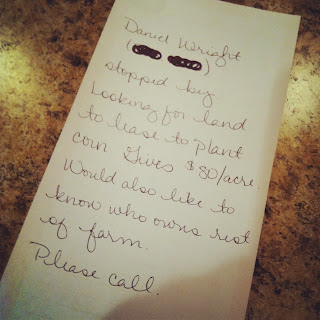 Daniel Wright
( )
stopped by
Looking for land
to lease to plant
corn Gives $80/acre.
Would also like to
know who owns rest
of farm.
Please call.